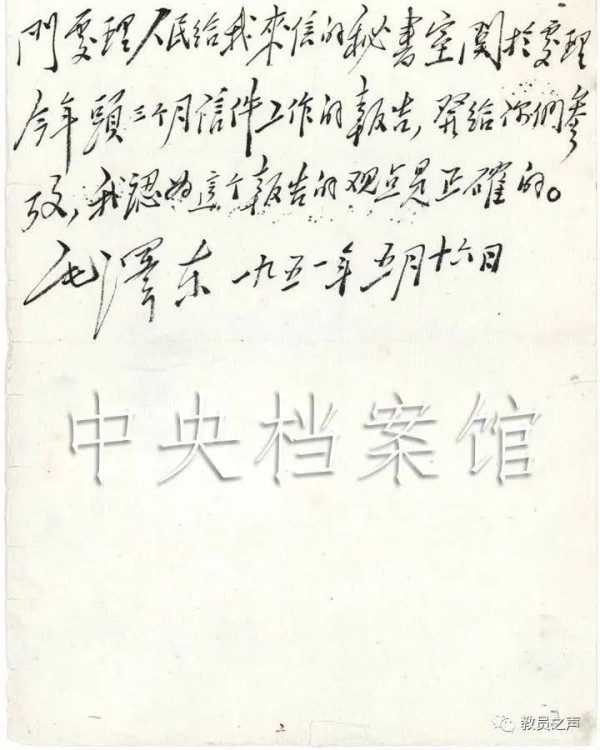 門處理人民給我來信的秘書室關於處理
今年頭三个月信件工作的報告,發給你們參
攷,我認為這个報告的观点是正確的。
毛澤东 一九五一年五月十六日
中央档案馆
教员之声